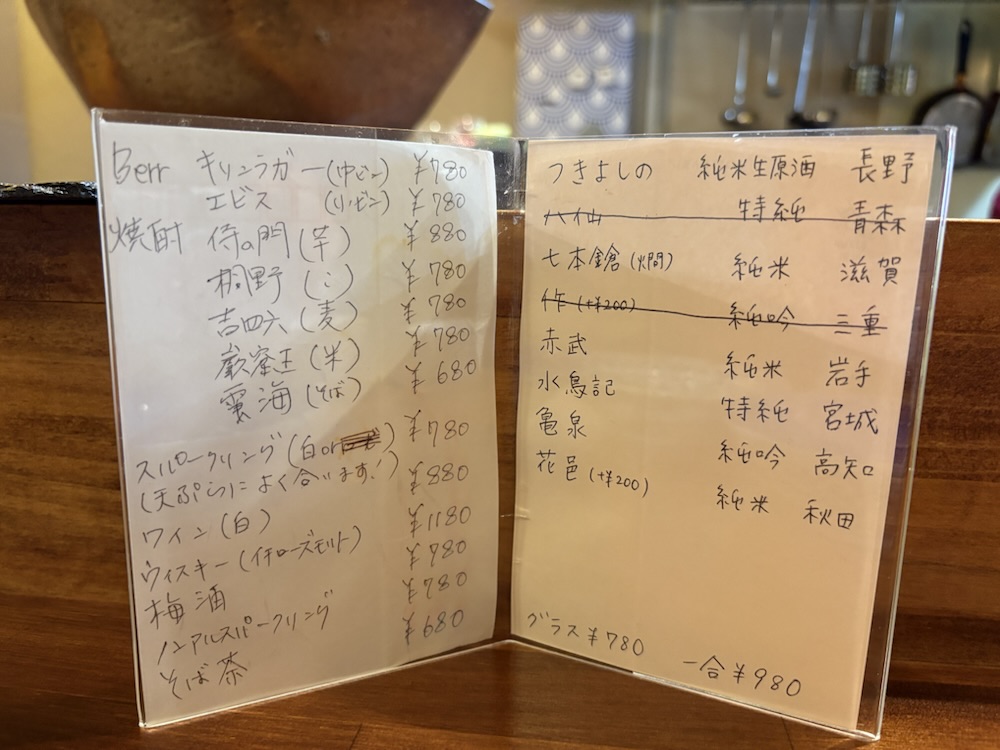 Berr キリンラガー(中ビン) ¥780
エビス (小ビン) ¥780
焼酎 侍の門(芋) ¥880
桐野(〃) ¥780
吉四六(麦) ¥780
巌窟王(米) ¥780
雲海(そば) ¥680
スパークリング(白or) ¥780
(天ぷらによく合います!)
ワイン(白) ¥880
ウィスキー(イチローズモルト) ¥1180
梅酒 ¥780
ノンアルスパークリング ¥780
そば茶 ¥680
つきよしの 純米生原酒 長野
八仙 特純 青森
七本鎗(燗) 純米 滋賀
作(+¥200) 純吟 三重
赤武 純米 岩手
水鳥記 特純 宮城
亀泉 純吟 高知
花邑(+¥200) 純米 秋田
グラス¥780 一合¥980